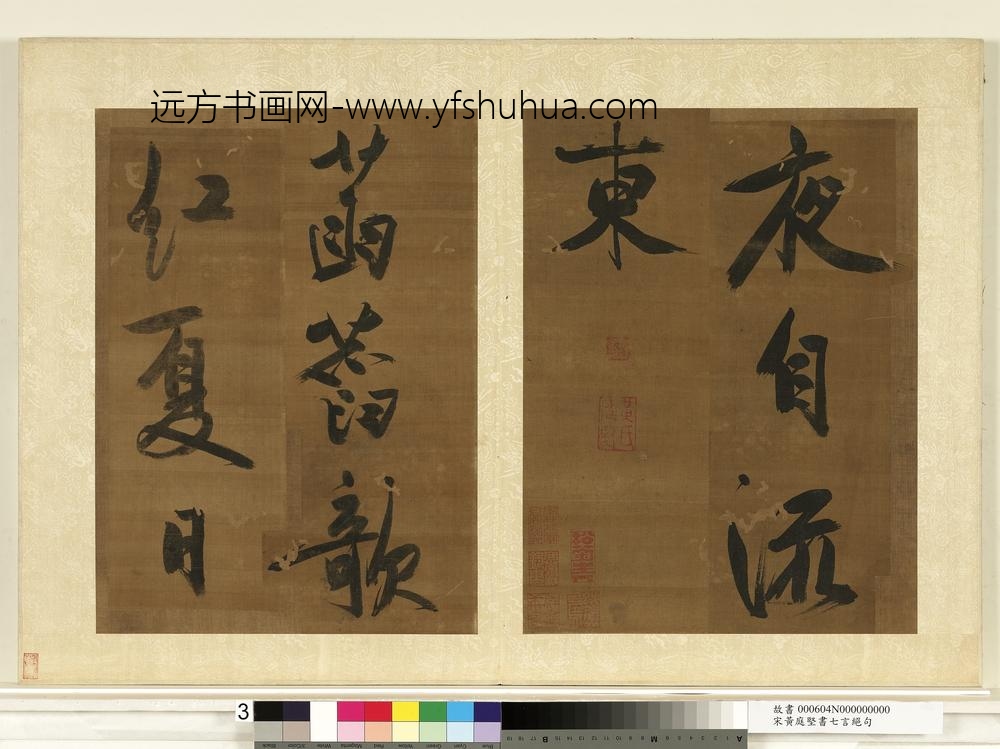 远方书画网-www.yfshuhua.com
夜自流
東
菡萏歇
紅夏日
3
故書 000604N000000000
宋黃庭堅書七言絕句